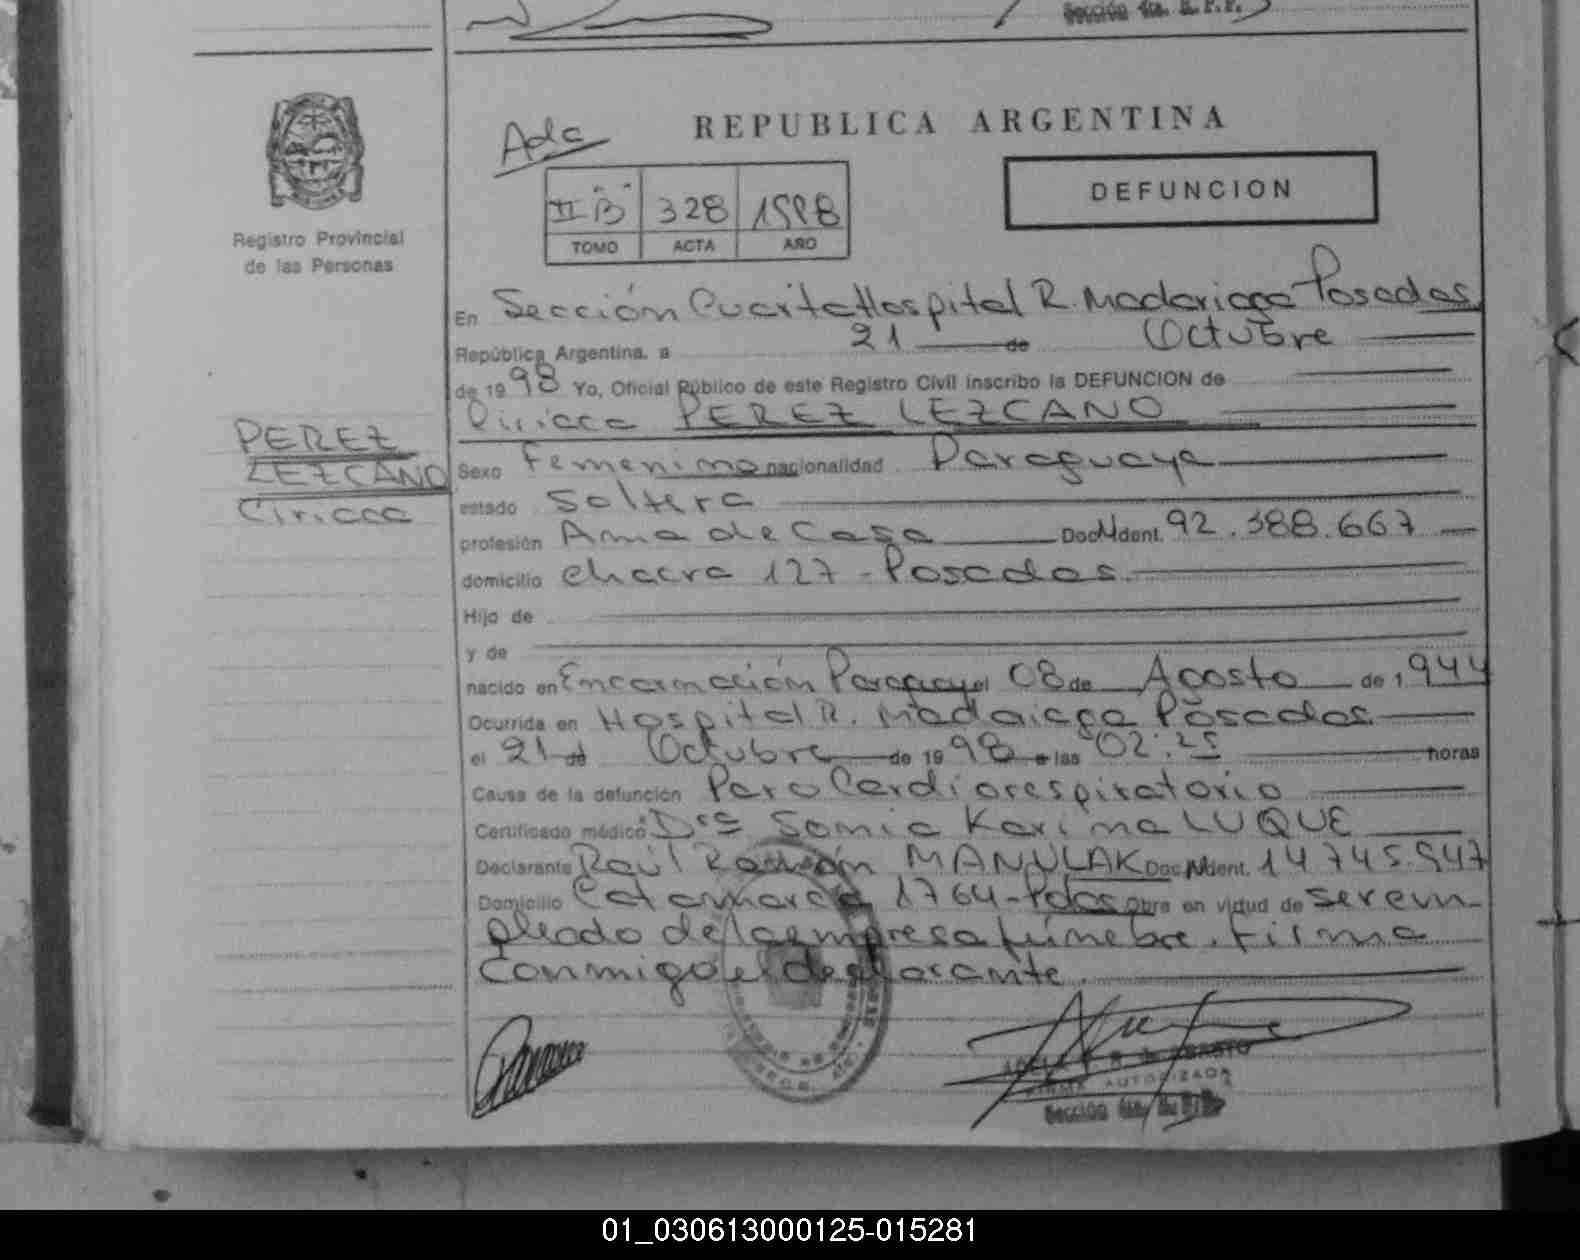 Sección 4ta. R. P. P.
Registro Provincial
de las Personas
Ada
REPUBLICA ARGENTINA
II "B" 328 1998
TOMO ACTA AÑO
DEFUNCION
En Sección Cuarta Hospital R. Madariaga Posadas
República Argentina, a 21 de Octubre
de 1998 Yo, Oficial Público de este Registro Civil inscribo la DEFUNCION de
Ciriaca PEREZ LEZCANO
PEREZ
LEZCANO
Ciriaca
Sexo Femenino nacionalidad Paraguaya
estado Soltera
profesión Ama de Casa Doc. Ident. 92.388.667
domicilio Chacra 127 - Posadas.
Hijo de
y de
nacido en Encarnación Paraguay el 08 de Agosto de 1944
Ocurrida en Hospital R. Madariaga Posadas
el 21 de Octubre de 1998 a las 02:25 horas
Causa de la defunción Paro Cardiorespiratorio
Certificado médico Dra Sonia Karina LUQUE
Declarante Raúl Ramón MANULAK Doc. Ident. 14745.947
Domicilio Catamarca 1764-Pdas Obra en virtud de ser em-
pleado de la empresa fúnebre. Firma
Conmigo el declarante.
FIRMA AUTORIZADA
Sección 4ta. R. P. P.
01_030613000125-015281